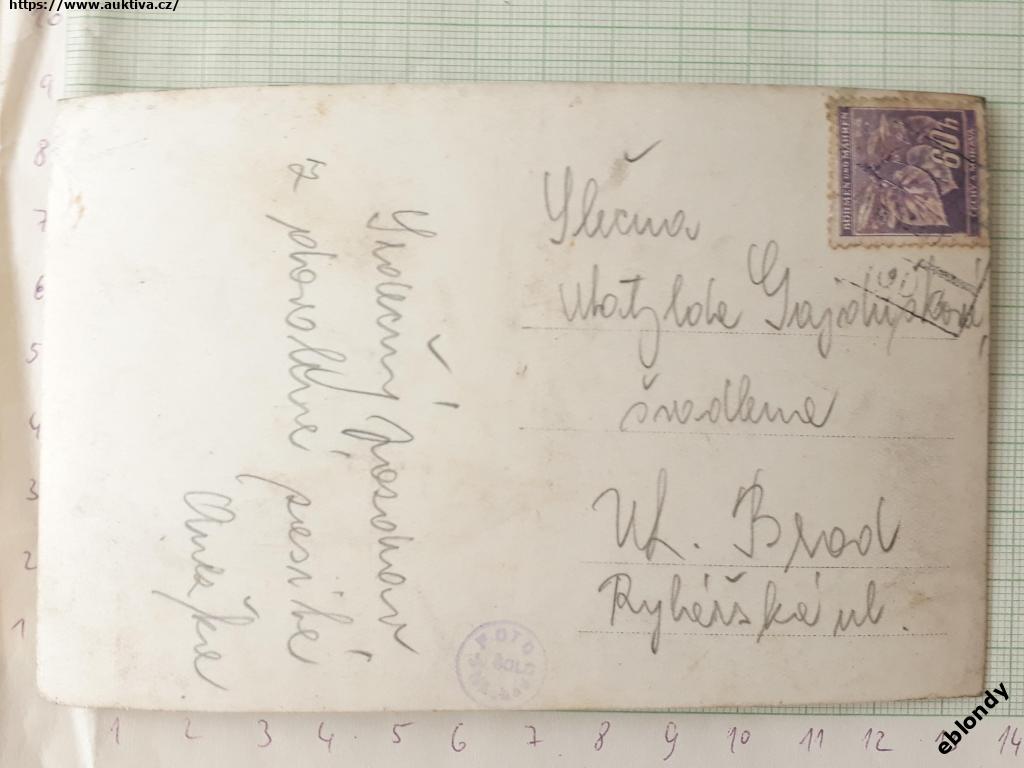 https://www.auktiva.cz/
Srdečný pozdrav
z dovolené posílá
Anežka
BÖHMEN UND MÄHREN
60h
ČECHY A MORAVA
Slečna
Matylda
švadlena
Uh. Brod
Rybářská ul.
FOTO
10
9
8
7
6
5
4
3
2
1
1 2 3 4 5 6 7 8 9 10 11 12 13 14
eblondy